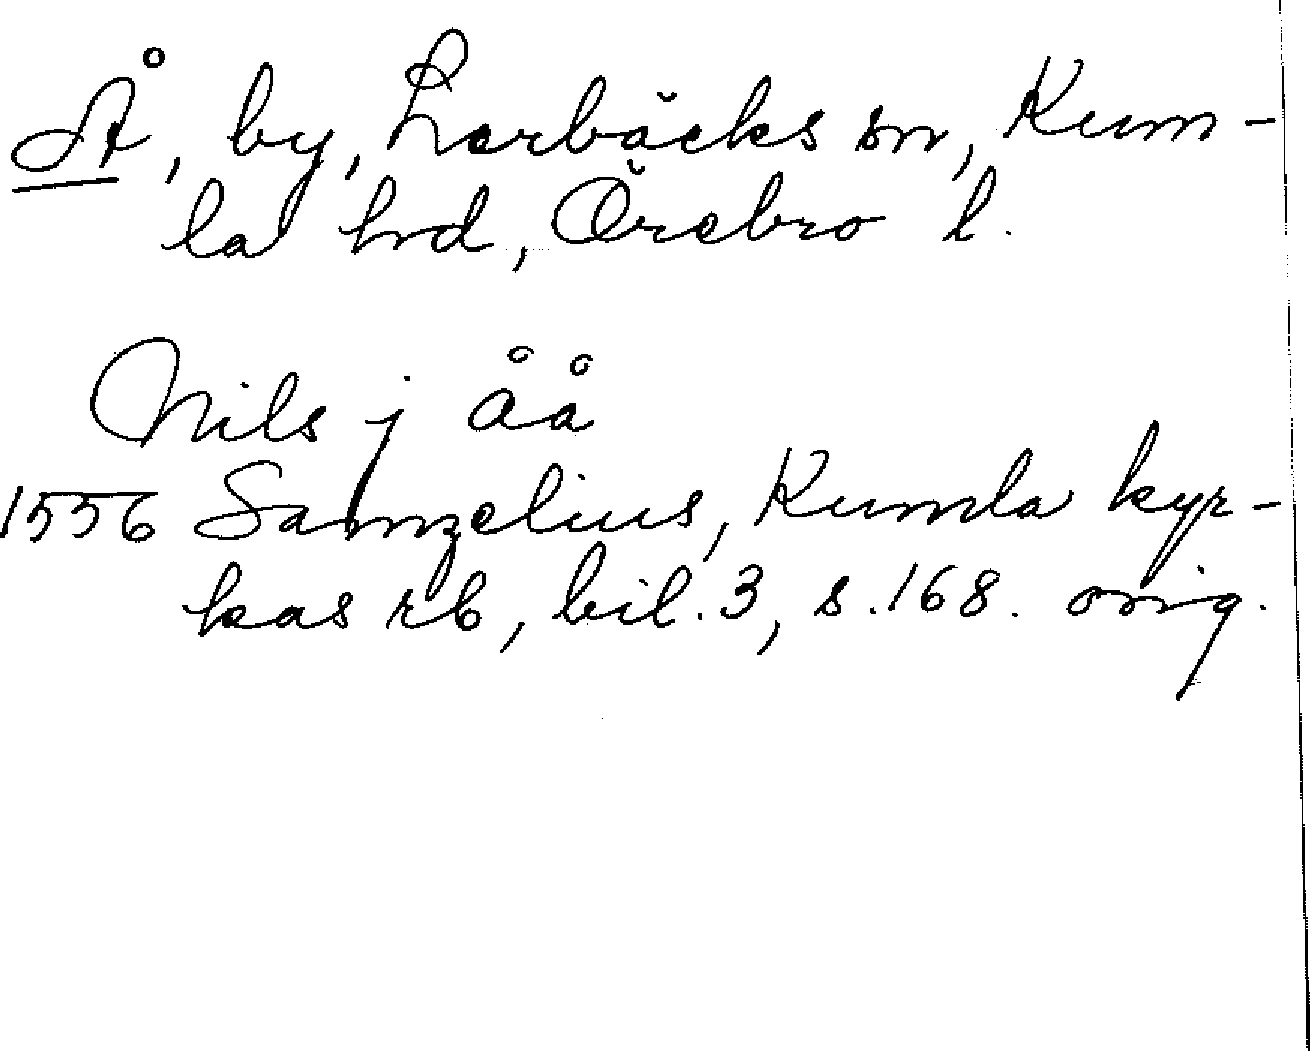 Å, by, Lerbäcks sn, Kum-
la hrd, Örebro l.
Nils j åå
1556 Samzelius, Kumla kyr-
kas rb, bil. 3, s. 168. orig.